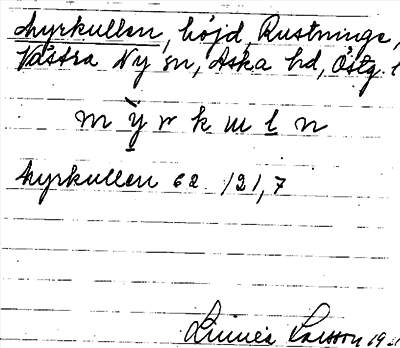 Myrkullen, höjd, Rustninge,
Västra Ny sn, Aska hd, Östg. l
m ỳ r k u l n
Myrkullen 62 121,7
Linnéa Larsson 19